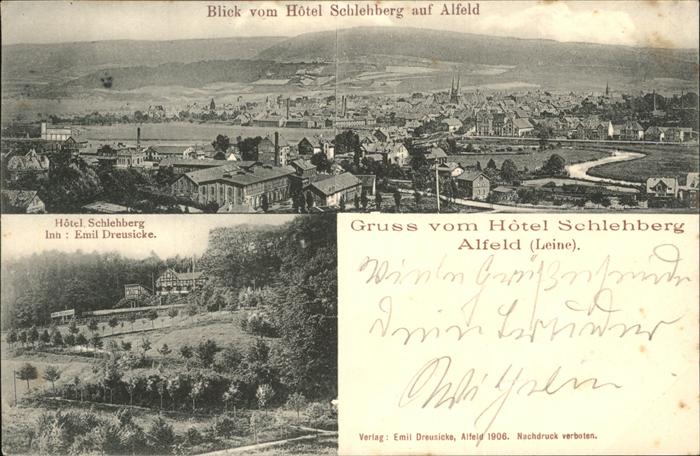 Blick vom Hôtel Schlehberg auf Alfeld
Hôtel Schlehberg
Inh : Emil Dreusicke.
Gruss vom Hôtel Schlehberg
Alfeld (Leine).
Viele Grüße sendet
dein Bruder
Wilhelm
Verlag : Emil Dreusicke, Alfeld 1906. Nachdruck verboten.